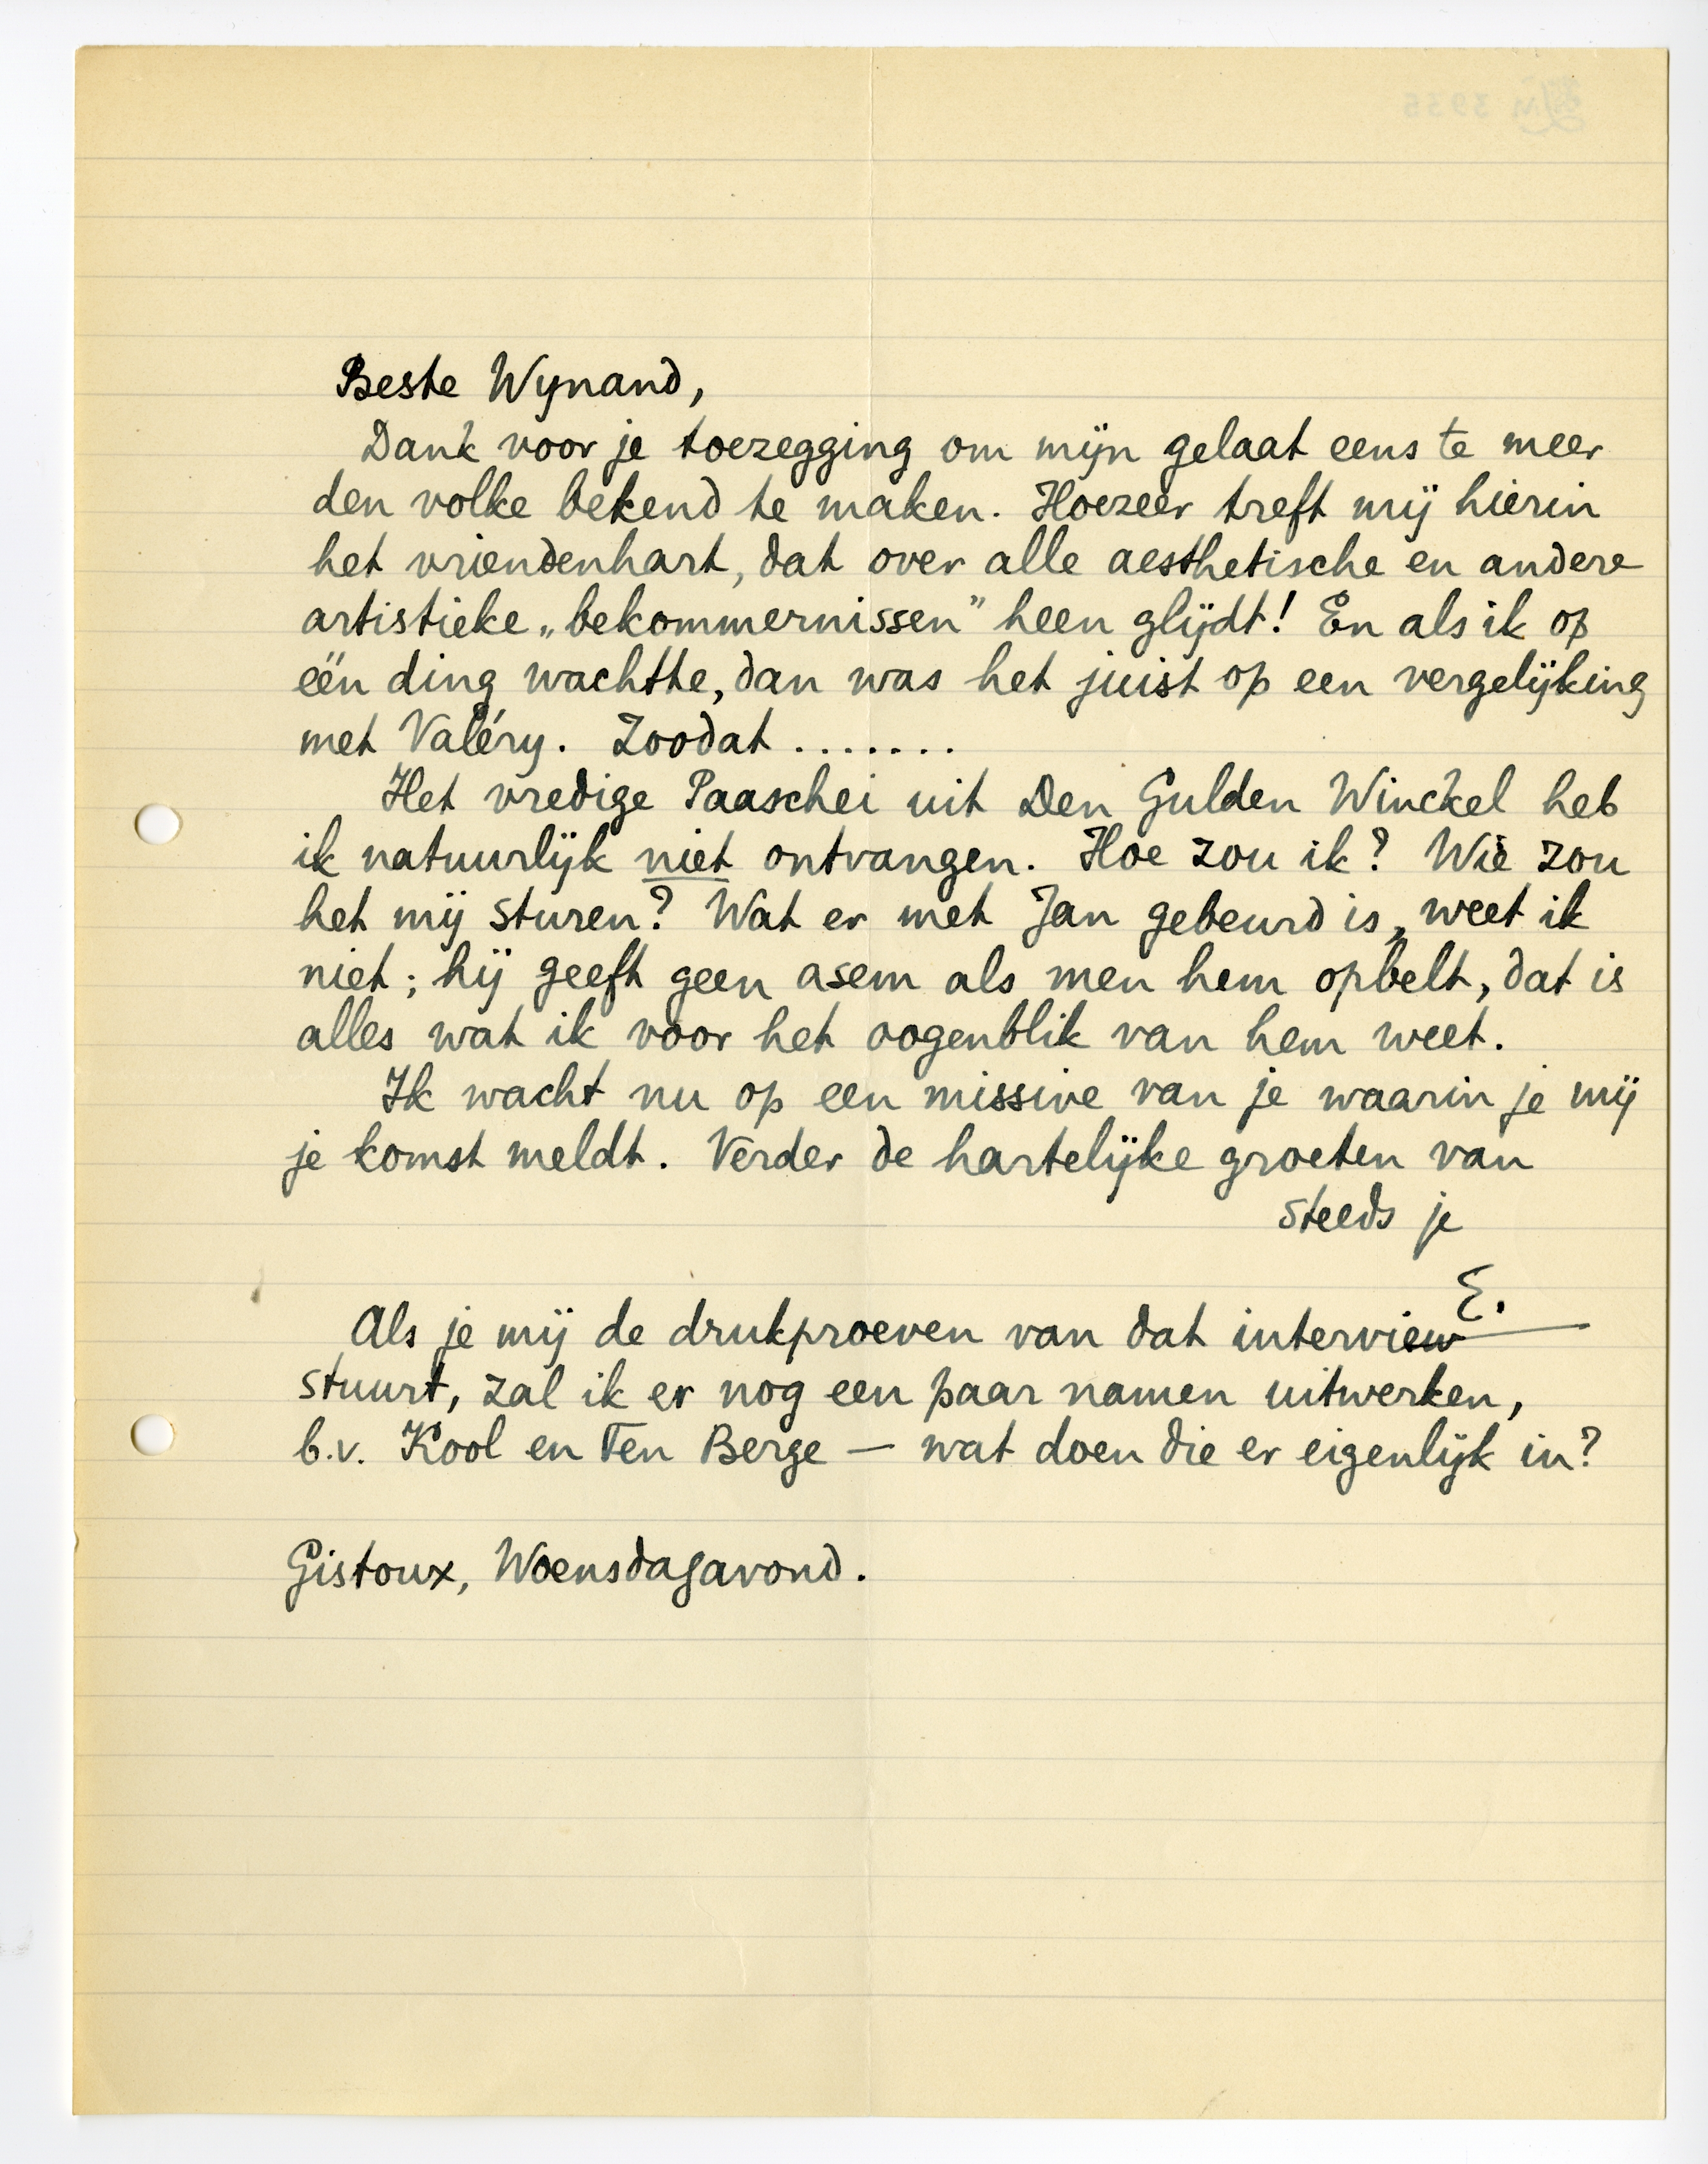 Beste Wynand,
Dank voor je toezegging om mijn gelaat eens te meer
den volke bekend te maken. Hoezeer treft mij hierin
het vriendenhart, dat over alle aesthetische en andere
artistieke „bekommernissen” heen glijdt! En als ik op
één ding wachtte, dan was het juist op een vergelijking
met Valéry. Zoodat .......
Het vredige Paaschei uit Den Gulden Winckel heb
ik natuurlijk niet ontvangen. Hoe zou ik? Wie zou
het mij sturen? Wat er met Jan gebeurd is, weet ik
niet; hij geeft geen asem als men hem opbelt, dat is
alles wat ik voor het oogenblik van hem weet.
Ik wacht nu op een missive van je waarin je mij
je komst meldt. Verder de hartelijke groeten van
steeds je
E.
Als je mij de drukproeven van dat interview
stuurt, zal ik er nog een paar namen uitwerken,
b.v. Kool en Ten Berge — wat doen die er eigenlijk in?
Gistoux, Woensdagavond.